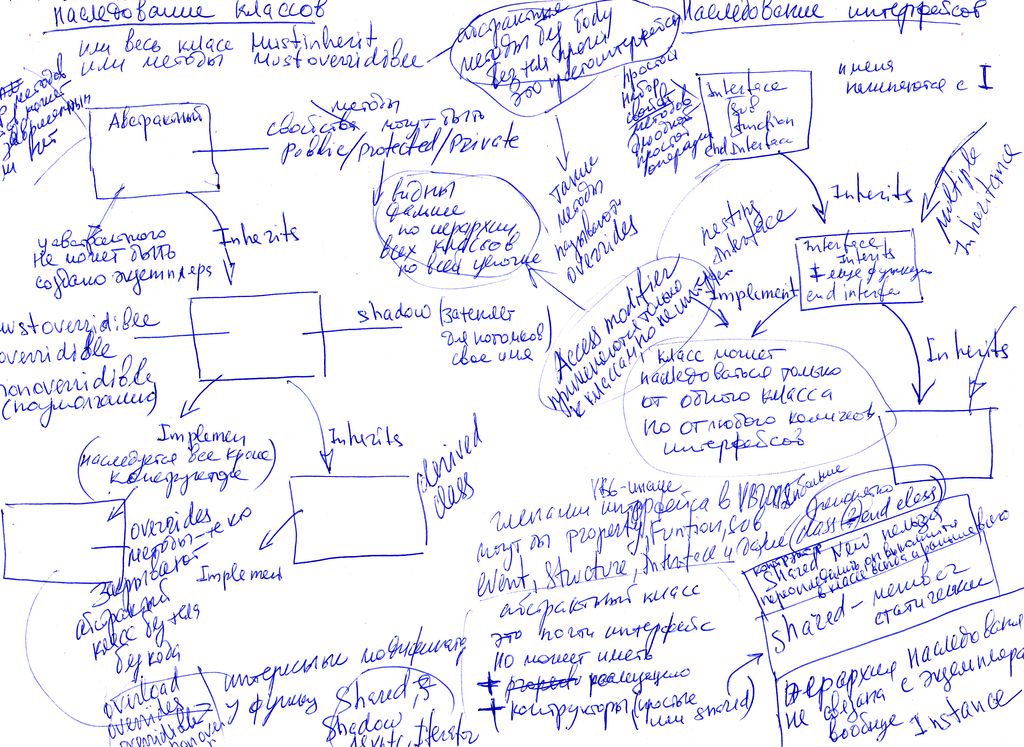 Наследование классов
или весь класс Mustinherit
или методы Mustoverridible
абстрактные
методы без body
без тела
это
Наследование интерфейсов
имена
начинаются с I
Абстрактный
методы
свойства могут быть
public/protected/private
простой
набор
свойств
методов
Interface
Sub
function
end Interface
Inherits
multiple
Inheritance
видны
дальше
по иерархии
всех классов
по всей цепочке
такие
методы
называют
overrides
у абстрактного
не может быть
создано экземпляра
Inherits
nesting
Interface
Interface
Inherits
+ еще функции
end interfa
Implement
Access modifier
применяются только
к классам, но не интер
mustoverridible
overridible
nonoverridible
(по умолчанию)
shadow (затеняет
для потомков
свое имя)
класс может
наследоваться только
от одного класса
но от любого количеств
интерфейсов
Inherits
Implemen
(наследуется все кроме
конструктора)
Inherits
derived
class
overrides
методы
закрывают
абстрактный
класс без тела
без кода
Implement
VB6-
членами интерфейса в VB
могут бы property, Funtion, Sub
event, Structure, Interface и даже class (end class)
абстрактный класс
это почти интерфейс
но может иметь
+ реализацию
+ конструкторы (простые
или shared)
Shared New нельзя
shared - member
статический
Иерархия наследования
не связана с экземпляра
вообще Instance
overload
overrides
overridible
nonover
интересные модификато
у функц
Shared,
Shadow
Iterator